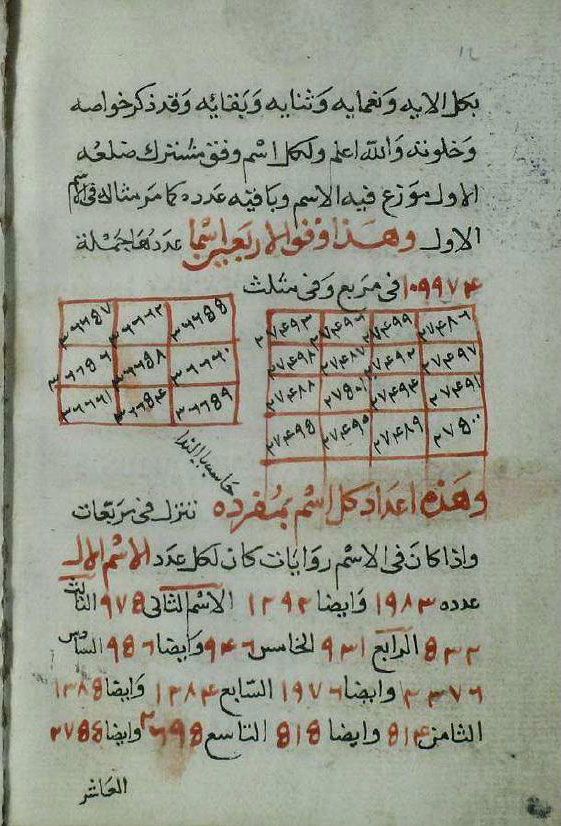 ١٢
بكل الايه ونعمايه وثنايه وبقائه وقد ذكر خواصه
وخلوته والله اعلم ولكل اسم وفق مشترك ضلعه
الاول موزع فيه الاسم وباقيه عدده كما مر مثاله فى الاسم
الاول وهذا وفق الاربعين اسما عددها جملة
١٠٩٩٧٤ فى مربع وفى مثلث
٢٧٤٨٦ ٢٧٤٩٩ ٢٧٤٩٦ ٢٧٤٩٣
٢٧٤٩٧ ٢٧٤٩٢ ٢٧٤٨٧ ٢٧٤٩٨
٢٧٤٩١ ٢٧٤٩٤ ٢٧٥٠١ ٢٧٤٨٨
٢٧٥٠٠ ٢٧٤٨٩ ٢٧٤٩٠ ٢٧٤٩٥
٣٦٦٥٥ ٣٦٦٦٢ ٣٦٦٥٧
٣٦٦٦٠ ٣٦٦٥٨ ٣٦٦٥٦
٣٦٦٥٩ ٣٦٦٥٤ ٣٦٦٦١
بالندا
وهذه اعداد كل اسم بمفرده تنزل فى مربعات
واذا كان فى الاسم روايات كان لكل عدد الاسم الاول
عدده ١٩٨٣ وايضا ١٢٩٢ الاسم الثانى ٩٧٨ الثالث
٨٣٢ الرابع ٩٣١ الخامس ٩٤٦ وايضا ٩٨٦ السادس
٢٣٧٦ وايضا ١٩٧٦ السابع ١٣٨٤ وايضا ١٣٨٥
الثامن ٨١٤ وايضا ٨١٥ التاسع ٢٦٩٥ وايضا ٢٧٥٥
العاشر